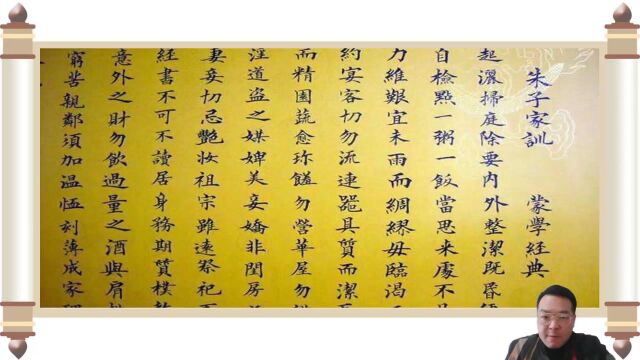 朱子家訓 蒙學經典
起灑掃庭除要內外整潔既昏便
自檢點一粥一飯當思來處不
力維艱宜未雨而綢繆毋臨渴
約宴客切勿流連器具質而潔
而精園蔬愈珍饈勿營華屋勿
淫道盜之媒婢美妾嬌非閨房
妻妾切忌艷妝祖宗雖遠祭祀
經書不可不讀居身務期質樸
意外之財勿飲過量之酒與肩
窮苦親鄰須加温恤刻薄成家